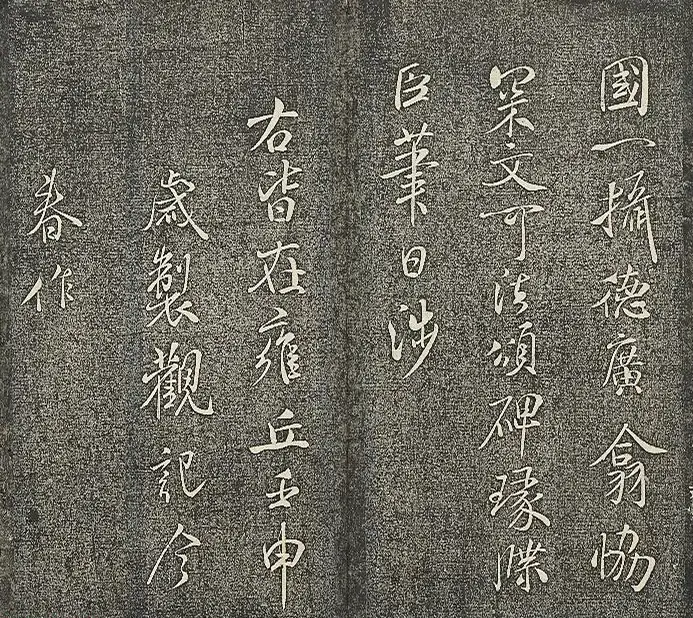 國一攝德廣翕協
罙文可法頌碑琢牒
臣筆日涉
右皆在雍丘壬申
歲製觀記今
春作